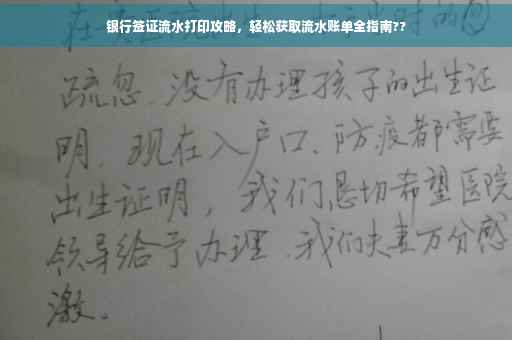 银行签证流水打印攻略，轻松获取流水账单全指南??
疏忽.没有办理孩子的出生证
明.现在入户口、防疫都需要
出生证明，我们恳切希望医院
领导给予办理.我们夫妻万分感
激。